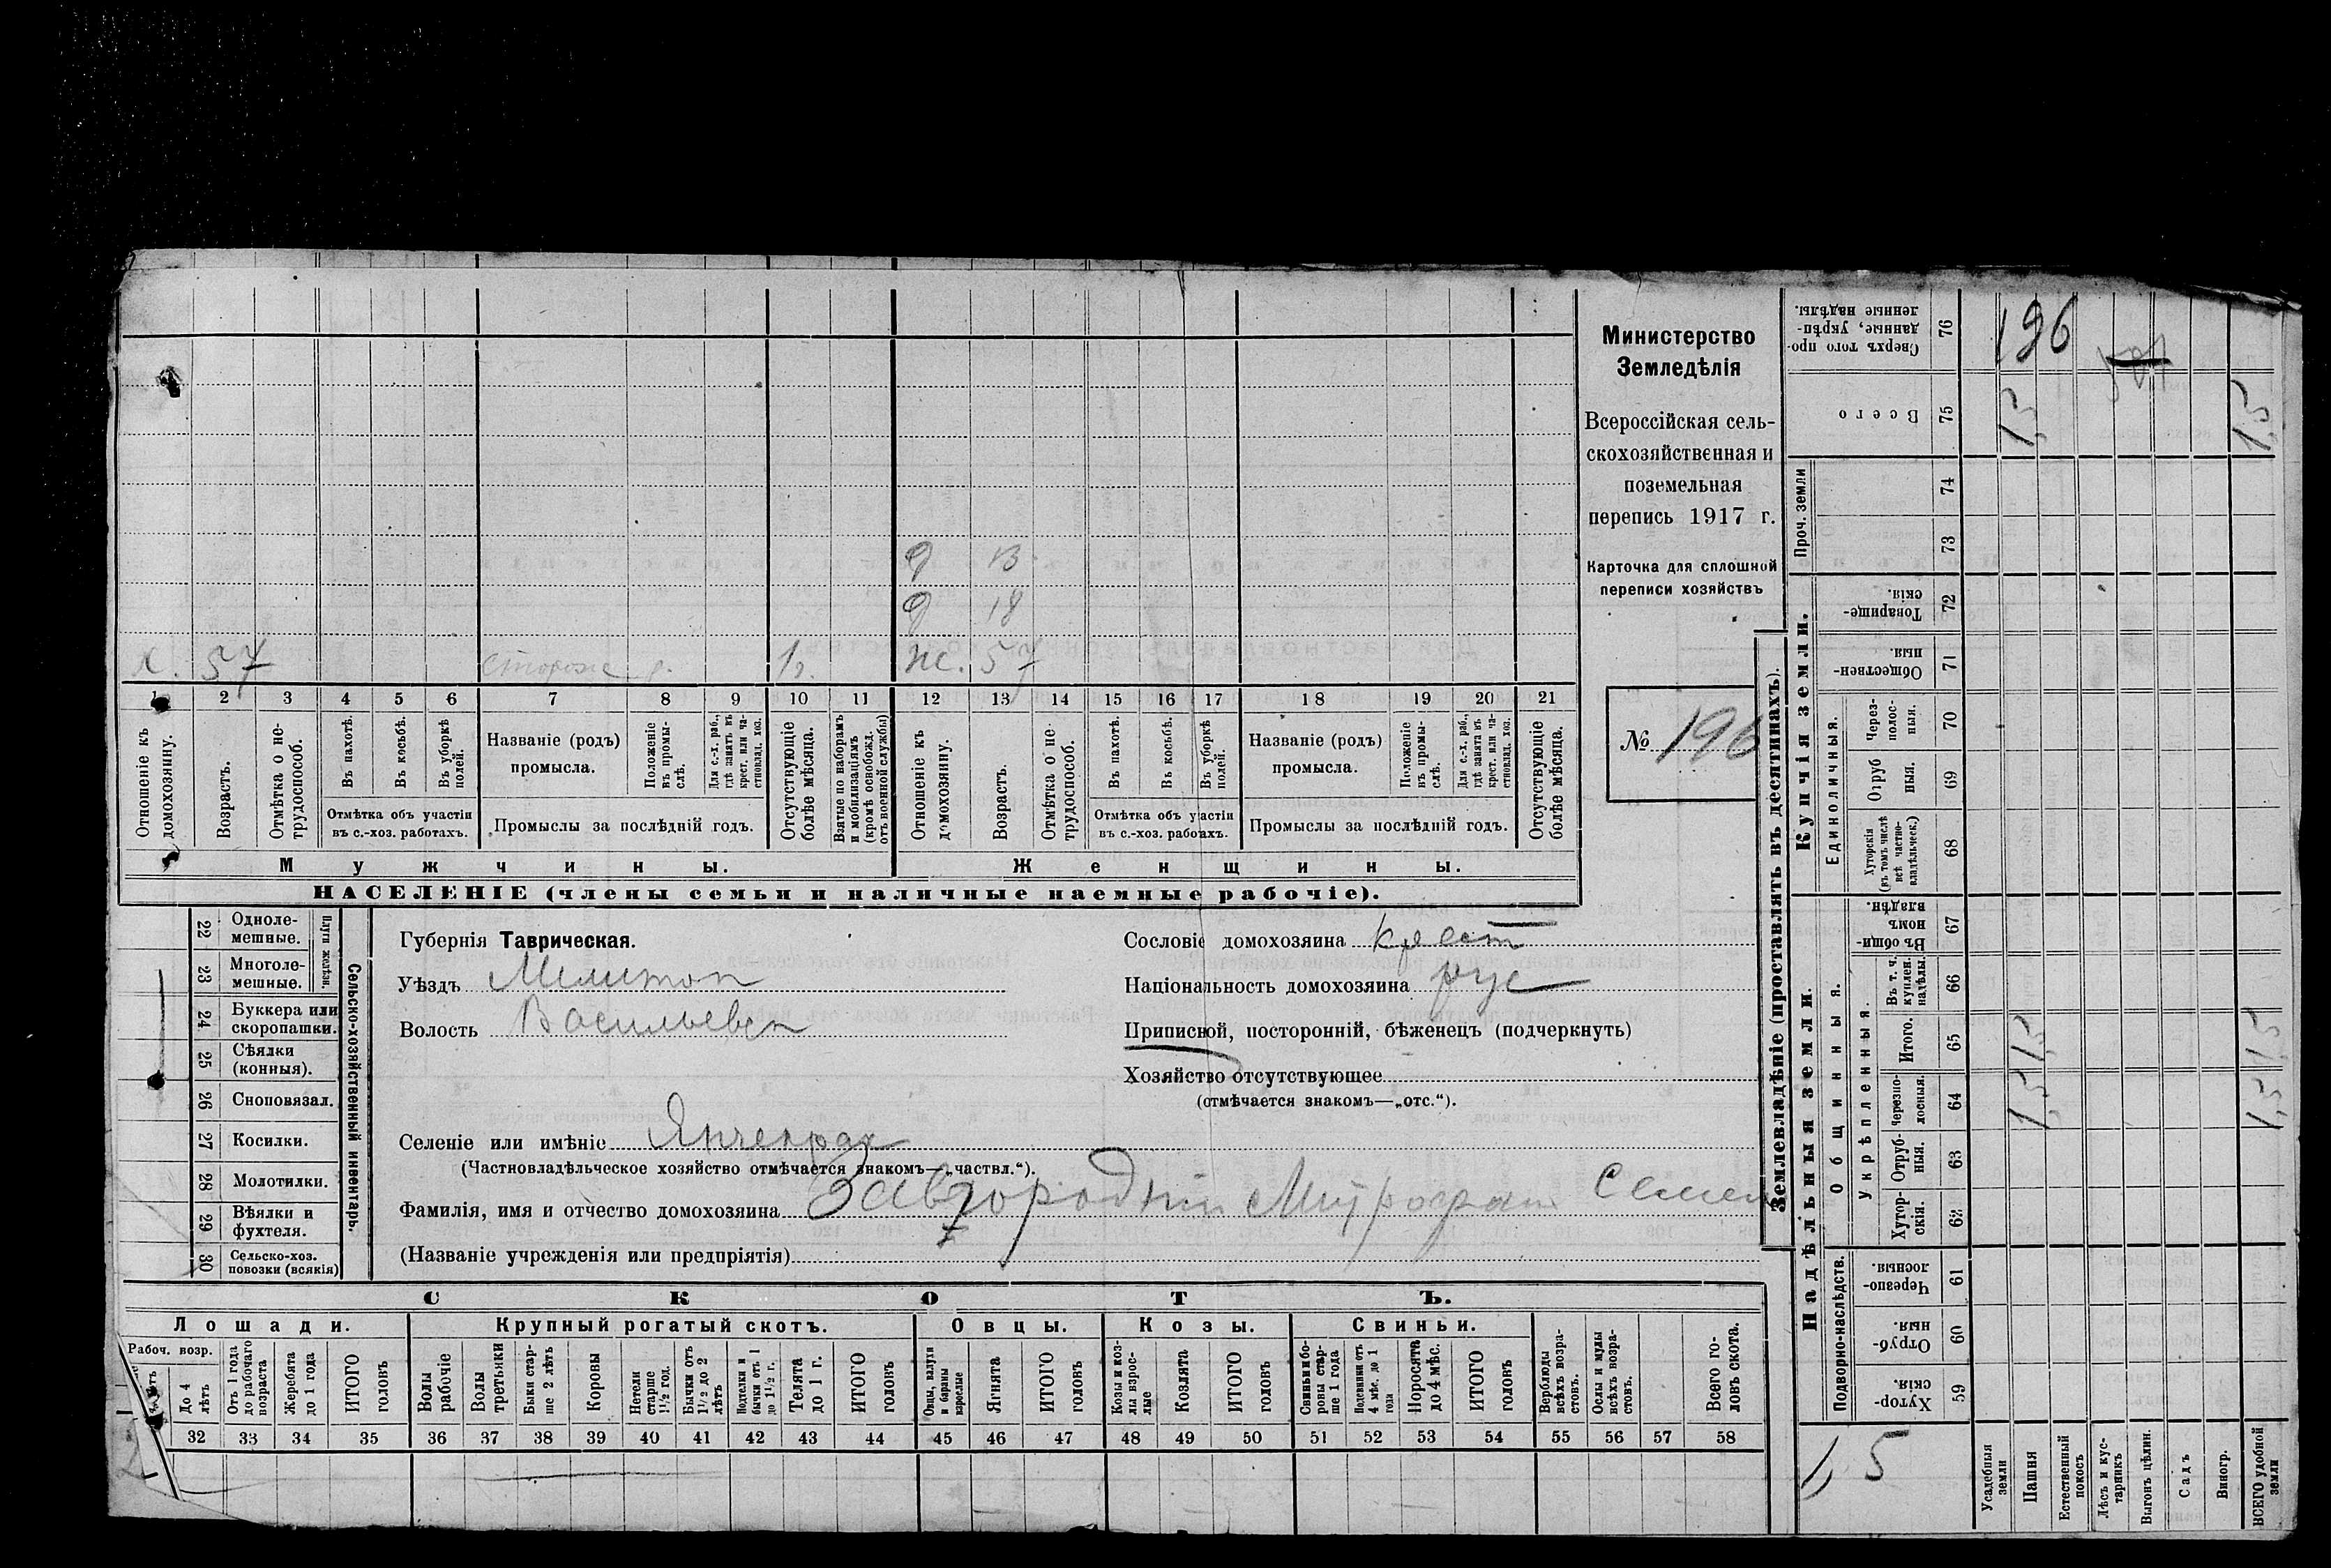 х. 57 сторож р. 12
д 13
д 18
ж. 57
1 2 3 4 5 6 7 8 9 10 11 12 13 14 15 16 17 18 19 20 21
Отношеніе къ домохозяину.
Возрастъ.
Отмѣтка о не-
трудоспособ.
Въ пахотѣ.
Въ косьбѣ.
Въ уборкѣ полей.
Отмѣтка объ участіи
въ с.-хоз. работахъ.
Названіе (родъ)
промысла.
Положеніе въ промы-
слѣ.
Для с.-х. раб.,
гдѣ занятъ въ
крест. или ча-
стновлад. хоз.
Промыслы за послѣдній годъ.
Отсутствующіе
болѣе мѣсяца.
Взятые по наборамъ
и мобилизаціямъ
(кромѣ освобожд.
отъ военной службы)
Отношеніе къ
домохозяину.
Возрастъ.
Отмѣтка о не-
трудоспособ.
Въ пахотѣ.
Въ косьбѣ.
Въ уборкѣ
полей.
Отмѣтка объ участіи
въ с.-хоз. работахъ.
Названіе (родъ)
промысла.
Положеніе
въ промы-
слѣ.
Для с.-х. раб.,
гдѣ занята въ
крест. или ча-
стновлад. хоз.
Промыслы за послѣдній годъ.
Отсутствующіе
болѣе мѣсяца.
Мужчины.
Женщины.
НАСЕЛЕНІЕ (члены семьи и наличные наемные рабочіе).
Министерство
Земледѣлія
Всероссійская сель-
скохозяйственная и
поземельная
перепись 1917 г.
Карточка для сплошной
переписи хозяйствъ
№ 196
22 Одноле-
мешные.
23 Многоле-
мешные.
Плуги желѣзн.
24 Буккера или
скоропашки.
25 Сѣялки
(конныя).
26 Сноповязал.
27 Косилки.
28 Молотилки.
29 Вѣялки и
фухтеля.
30 Сельско-хоз.
повозки (всякія)
Сельско-хозяйственный инвентарь.
Губернія Таврическая.
Уѣздъ Мелитоп
Волость Васильевск
Сословіе домохозяина крест
Національность домохозяина рус
Приписной, посторонній, бѣженецъ (подчеркнуть)
Хозяйство отсутствующее
(отмѣчается знакомъ—„отс.“).
Селеніе или имѣніе Янчекрак
(Частновладѣльческое хозяйство отмѣчается знакомъ—„частвл.“).
Фамилія, имя и отчество домохозяина Завгородній Митрофан Семен
(Названіе учрежденія или предпріятія)
СКОТЪ.
Лошади.
Крупный рогатый скотъ.
Овцы.
Козы.
Свиньи.
Рабоч. возр.
До 4
лѣтъ
Отъ 1 года
до рабочаго
возраста
Жеребята
до 1 года
ИТОГО
головъ
Волы
рабочіе
Волы
третьяки
Быки стар-
ше 2 лѣтъ
Коровы
Нетели
старше
1½ год.
Бычки отъ
1½ до 2
лѣтъ
Подтелки и
бычки отъ 1
до 1½ г.
Телята
до 1 г.
ИТОГО
головъ
Овцы, валухи
и бараны
взрослые
Ягнята
ИТОГО
головъ
Козы и коз-
лы взрос-
лые
Козлята
ИТОГО
головъ
Свиньи и бо-
ровы стар-
ше 1 года
Подсвинки отъ
4 мѣс. до 1
года
Поросята
до 4 мѣс.
ИТОГО
головъ
Верблюды
всѣхъ возра-
стовъ.
Ослы и мулы
всѣхъ возра-
стовъ.
Всего го-
ловъ скота.
32 33 34 35 36 37 38 39 40 41 42 43 44 45 46 47 48 49 50 51 52 53 54 55 56 57 58
Землевладѣніе (проставлять въ десятинахъ).
Сверхъ того про-
данные, укрѣп-
ленные надѣлы.
76
196
Всего
75
1,5
1,5
Проч. земли
74
73
Купчія земли.
Товарище-
скія.
72
Обществен-
ныя.
71
Единоличныя.
Через-
полос-
ныя.
70
Отруб
ныя.
69
Хуторскія
(въ томъ числѣ
всѣ частно-
владѣльческ.)
68
Надѣльныя земли.
Общинныя.
Въ общи-
номъ
владѣн.
67
Укрѣпленныя.
Въ т. ч.
куплен.
надѣлы.
66
Итого.
65
1,5
1,5
Черезпо-
лосныя.
64
1,5
1,5
Отруб-
ныя.
63
Хутор-
скія.
62
Подворно-наслѣдств.
Черезпо-
лосныя.
61
Отруб-
ныя.
60
Хутор-
скія.
59
1,5
Усадебныя
земли
Пашня
Естественный
покосъ
Лѣсъ и кус-
тарникъ
Выгонъ цѣлин.
Садъ
Виногр.
ВСЕГО удобной
земли